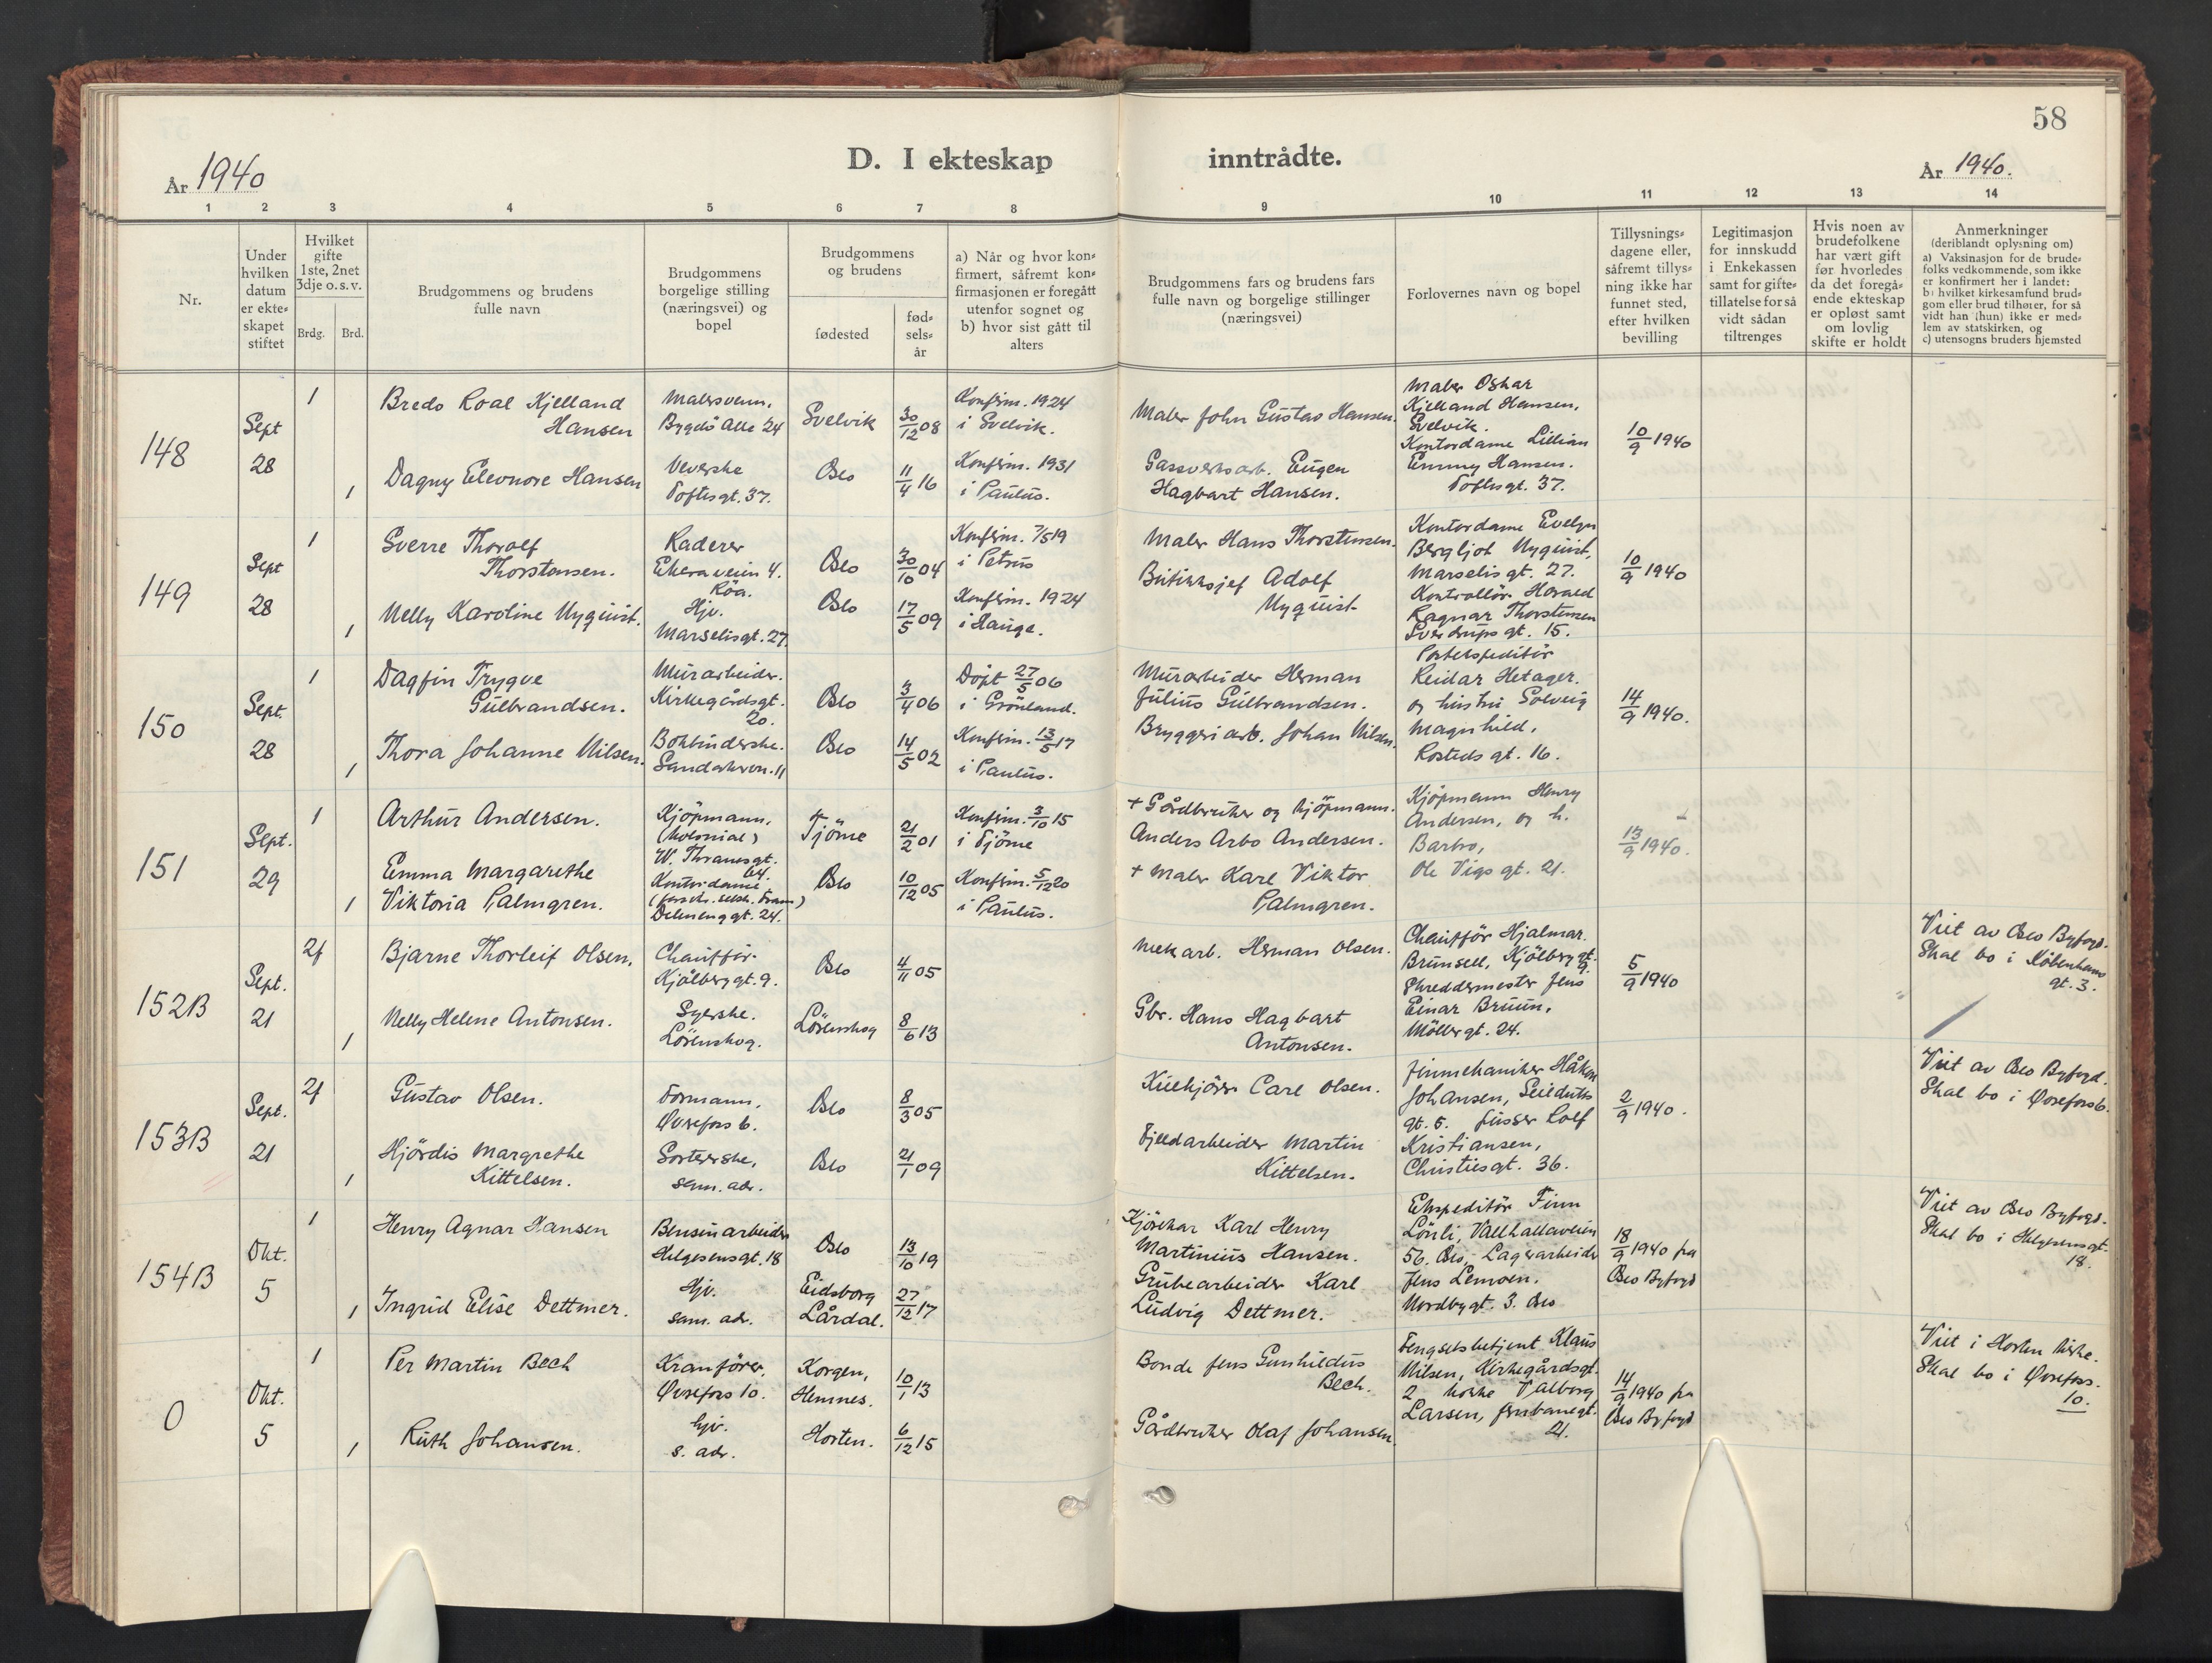 58
D. I ekteskap inntrådte.
År 1940
År 1940.
1 2 3 4 5 6 7 8 9 10 11 12 13 14
Nr.
Under
hvilken
datum
er ekte-
skapet
stiftet
Hvilket
gifte
1ste, 2net
3dje o. s. v.
Brdg. Brd.
Brudgommens og brudens
fulle navn
Brudgommens
borgelige stilling
(næringsvei) og
bopel
Brudgommens
og brudens
fødested
fød-
sels-
år
a) Når og hvor kon-
firmert, såfremt kon-
firmasjonen er foregått
utenfor sognet og
b) hvor sist gått til
alters
Brudgommens fars og brudens fars
fulle navn og borgelige stillinger
(næringsvei)
Forlovernes navn og bopel
Tillysnings-
dagene eller,
såfremt tillys-
ning ikke har
funnet sted,
efter hvilken
bevilling
Legitimasjon
for innskudd
i Enkekassen
samt for gifte-
tillatelse for så
vidt sådan
tiltrenges
Hvis noen av
brudefolkene
har vært gift
før hvorledes
da det foregå-
ende ekteskap
er opløst samt
om lovlig
skifte er holdt
Anmerkninger
(deriblandt oplysning om)
a) Vaksinasjon for de brude-
folks vedkommende, som ikke
er konfirmert her i landet:
b) hvilket kirkesamfund brud-
gom eller brud tilhører, for så
vidt han (hun) ikke er med-
lem av statskirken, og
c) utensogns bruders hjemsted
148
Sept
28
1
1
Bredo Roal Kjelland
Hansen
Dagny Eleonore Hansen
Malersvenn,
Bygdö Alle 24
Veverske
Toftesgt. 37.
Svelvik
Oslo
30/12 08
11/4 16
Konfirm. 1924
i Svelvik.
Konfirm. 1931
i Paulus.
Maler John Gustav Hansen.
Gassverksarb. Eugen
Hagbart Hansen.
Maler Oskar
Kjelland Hansen,
Svelvik.
Kontordame Lillian
Emmy Hansen.
Toftesgt. 37.
10/9 1940
149
Sept
28
1
1
Sverre Thorolf
Thorstensen.
Nelly Karoline Nyquist.
Raderer
Ekeraveien 4.
Röa.
Hjv.
Marselisgt. 27.
Oslo
Oslo
30/10 04
17/5 09
Konfirm. 7/5 19
i Petrus
Konfirm. 1924
i Hauge.
Maler Hans Thorstensen.
Butikksjef Adolf
Nyquist
Kontordame Evelyn
Bergljot Nyquist,
Marselis gt. 27.
Kontrollör Harald
Ragnar Thorstensen
Sverdrups gt. 15.
10/9 1940
150
Sept.
28
1
1
Dagfin Trygve
Gulbrandsen.
Thora Johanne Nilsen.
Murarbeider.
Kirkegårdsgt.
20.
Bokbinderske.
Sandakervn. 11
Oslo
Oslo
3/4 06
14/5 02
Döpt 27/5 06
i Grönland.
Konfirm. 13/5 17
i Paulus.
Murarbeider Herman
Julius Gulbrandsen.
Bryggeriarb. Johan Nilsen.
Postekspeditör
Reidar Hetager.
og hustru Solveig
Magnhild,
Rosteds gt. 16.
14/9 1940.
151
Sept.
29
1
1
Arthur Andersen.
Emma Margarethe
Viktoria Palmgren.
Kjöpmann,
(kolonial)
W. Thranesgt.
64.
Kontordame
(forsikr. selsk. Fram)
Delenenggt. 24.
Tjöme
Oslo
21/2 01
10/12 05
Konfirm. 3/10 15
i Tjöme
Konfirm. 5/12 20
i Paulus.
+ Gårdbruker og kjöpmann.
Anders Arbo Andersen.
+ Maler Karl Viktor
Palmgren.
Kjöpmann Henry
Andersen, og h.
Barbro,
Ole Vigs gt. 21.
13/9 1940.
152B
Sept.
21
2f
1
Bjarne Thorleif Olsen,
Nelly Helene Antonsen.
Chaufför.
Kjölberggt. 9.
Syerske.
Lörenskog.
Oslo
Lörenskog
4/11 05
8/6 13
Mek arb. Herman Olsen.
Gbr. Hans Hagbart
Antonsen.
Chaufför Hjalmar
Brunsell, Kjölberggt.
9.
Skreddermester Jens
Einar Bruun,
Möllergt. 24.
5/9 1940
Viet av Oslo Byfogd.
Skal bo i Københavns
gt. 3.
153B
Sept.
21
2f
1
Gustav Olsen.
Hjördis Margrethe
Kittelsen.
Formann,
Øvrefoss 6.
Sorterske,
sam. adr.
Oslo
Oslo
8/3 05
21/1 09
Kullkjörer Carl Olsen.
Fjellarbeider Martin
Kittelsen.
Finmekaniker Håkon
Johansen, Seilduks
gt. 5. Jusser Rolf
Kristiansen,
Christiesgt. 36.
2/9 1940.
Viet av Oslo Byfogd.
Skal bo i Øvrefoss 6.
154B
Okt.
5
1
1
Henry Agnar Hansen
Ingrid Elise Dettmer.
Bensinarbeider
Helgesensgt. 18
Hjv.
sam. adr.
Oslo
Eidsborg
Lårdal.
13/10 19
27/12 17
Kjörekar Karl Henry
Martinius Hansen.
Grubearbeider Karl
Ludvig Dettmer.
Ekspeditör Finn
Lönli, Vallhallaveien
56. Oslo, Lagerarbeider
Jens Lemoen,
Nordbygt. 3. Oslo
18/9 1940 fra
Oslo Byfogd
Viet av Oslo Byfogd.
Skal bo i Helgesensgt.
18.
0
Okt.
5
1
1
Per Martin Bech
Ruth Johansen.
Kranförer,
Øvrefoss 10.
hjv.
s. adr.
Korgen,
Hemnes.
Horten.
10/1 13
6/12 15
Bonde Jens Gunhildus
Bech.
Gårdbruker Olaf Johansen.
Fengselsbetjent Klaus
Nilsen, Kirkegårdsgt.
2 kokke Valborg
Larsen, Jernbanegt.
21.
14/9 1940 fra
Oslo Byfogd
Viet i Horten kirke.
Skal bo i Øvrefoss.
10.